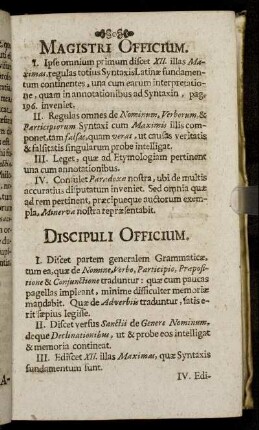 MAGISTRI OFFICIUM.
I. Ipse omnium primum discet XII. illas Ma-
ximas, regulas totius Syntaxis Latinæ fundamen-
tum continentes, una cum earum interpretatio-
ne, quam in annotationibus ad Syntaxin, pag.
196. inveniet.
II. Regulas omnes de Nominum, Verborum &
Participiorum Syntaxi cum Maximis illis com-
ponet, tam falsas, quam veras, ut causas veritatis
& falsitatis singularum probe intelligat.
III. Leget, quæ ad Etymologiam pertinent
una cum annotationibus.
IV. Consulet Paradoxa nostra, ubi de multis
accuratius disputatum inveniet. Sed omnia quæ
ad rem pertinent, præcipueque auctorum exem-
pla, Minerva nostra repræsentabit.
DISCIPULI OFFICIUM.
I. Discet partem generalem Grammaticæ,
tum ea, quæ de Nomine, Verbo, Participio, Præposi-
tione & Conjunctione traduntur: quæ cum paucas
pagellas impleant, minime difficulter memoriæ
mandabit. Quæ de Adverbiis traduntur, satis e-
rit sæpius legisse.
II. Discet versus Sanctii de Genere Nominum,
deque Declinationibus, ut & probe eos intelligat
& memoria contineat.
III. Ediscet XII. illas Maximas, quæ Syntaxis
fundamentum sunt.
IV. Edi-
A-